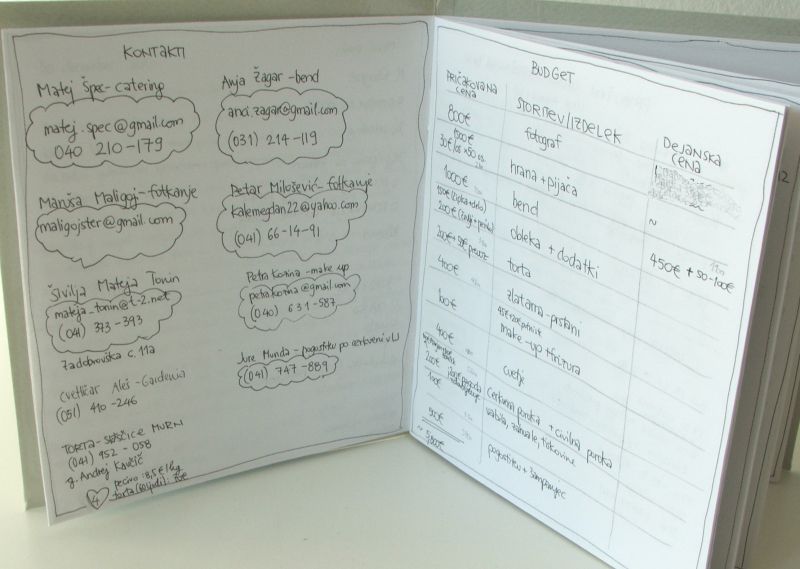 KONTAKTI
Matej Špec - catering
matej.spec@gmail.com
040 210-179
Maruša Maligoj - fotkanje
maligojster@gmail.com
Šivilja Mateja Tonin
mateja_tonin@t-2.net
(041) 373-393
Zadobrovška c. 11a
Cvetličar Aleš - Gardenia
(051) 410-246
TORTA - SLAŠČICE MURN
(041) 952-058
g. Andrej Kavčič
pecivo: 8,5€/kg
torta (60 ljudi):
4
Anja Žagar - bend
anci.zagar@gmail.com
(031) 214-119
Petar Milošević - fotkanje
kalemegdan22@yahoo.com
(041) 66-14-91
Petra Korina - make up
petrakorina@gmail.com
(040) 631-587
Jure Munda - pogostitev po cerkveni v LJ
(041) 747-889
BUDGET
PRIČAKOVANA CENA
STORITEV/IZDELEK
DEJANSKA CENA
800€
fotograf
1500€
30€/os x 50 os.
hrana + pijača
~
1000€
bend
450€ + 50-100€
obleka + dodatki
200€ + 50€ prevoz
torta
400€
zlatarna - prstani
make-up + frizura
100€
cvetje
400€
cerkvena poroka + civilna poroka
200€
vabila, zahvale, tiskovine
100€
500€
pogostitev + šampanjec
~ 5,800€
12